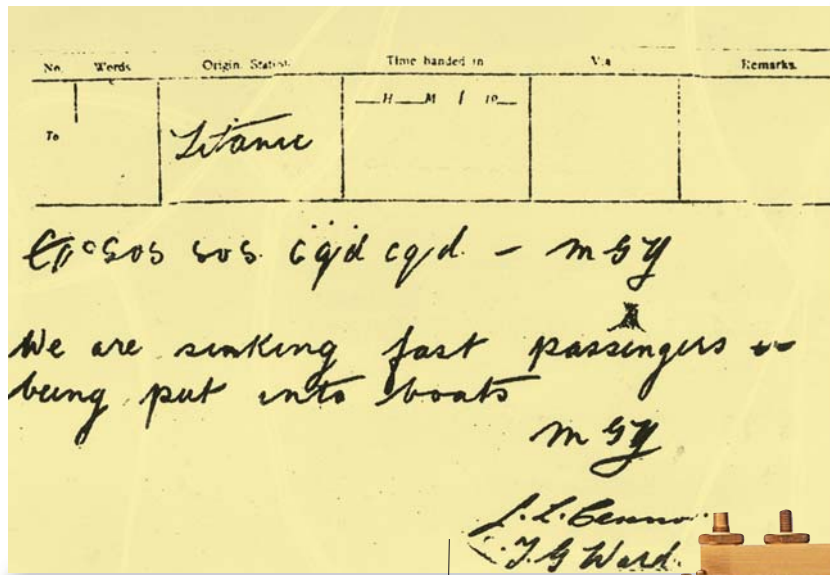 No. Words Origin. Station. Time handed in Via Remarks.
H M / 19
To
Titanic
SOS SOS. cqd cqd. - MGY
We are sinking fast passengers
being put into boats
MGY
T. G Ward.